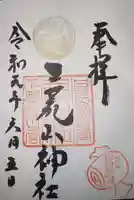 奉拝
二荒山神社
令和元年六月五日